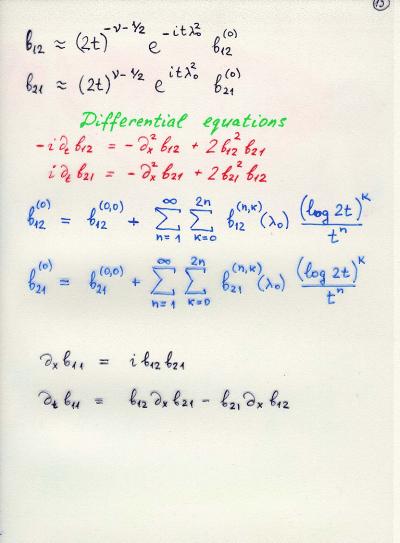 13
b₁₂ ≈ (2t)^{-ν-1/2} e^{-itλ₀²} b₁₂^{(0)}
b₂₁ ≈ (2t)^{ν-1/2} e^{itλ₀²} b₂₁^{(0)}
Differential equations
-i∂ₜb₁₂ = -∂ₓ²b₁₂ + 2b₁₂²b₂₁
i∂ₜb₂₁ = -∂ₓ²b₂₁ + 2b₂₁²b₁₂
b₁₂^{(0)} = b₁₂^{(0,0)} + ∑_{n=1}^{∞} ∑_{k=0}^{2n} b₁₂^{(n,k)}(λ₀) (log 2t)^k / t^n
b₂₁^{(0)} = b₂₁^{(0,0)} + ∑_{n=1}^{∞} ∑_{k=0}^{2n} b₂₁^{(n,k)}(λ₀) (log 2t)^k / t^n
∂ₓb₁₁ = i b₁₂b₂₁
∂ₜb₁₁ = b₁₂∂ₓb₂₁ - b₂₁∂ₓb₁₂